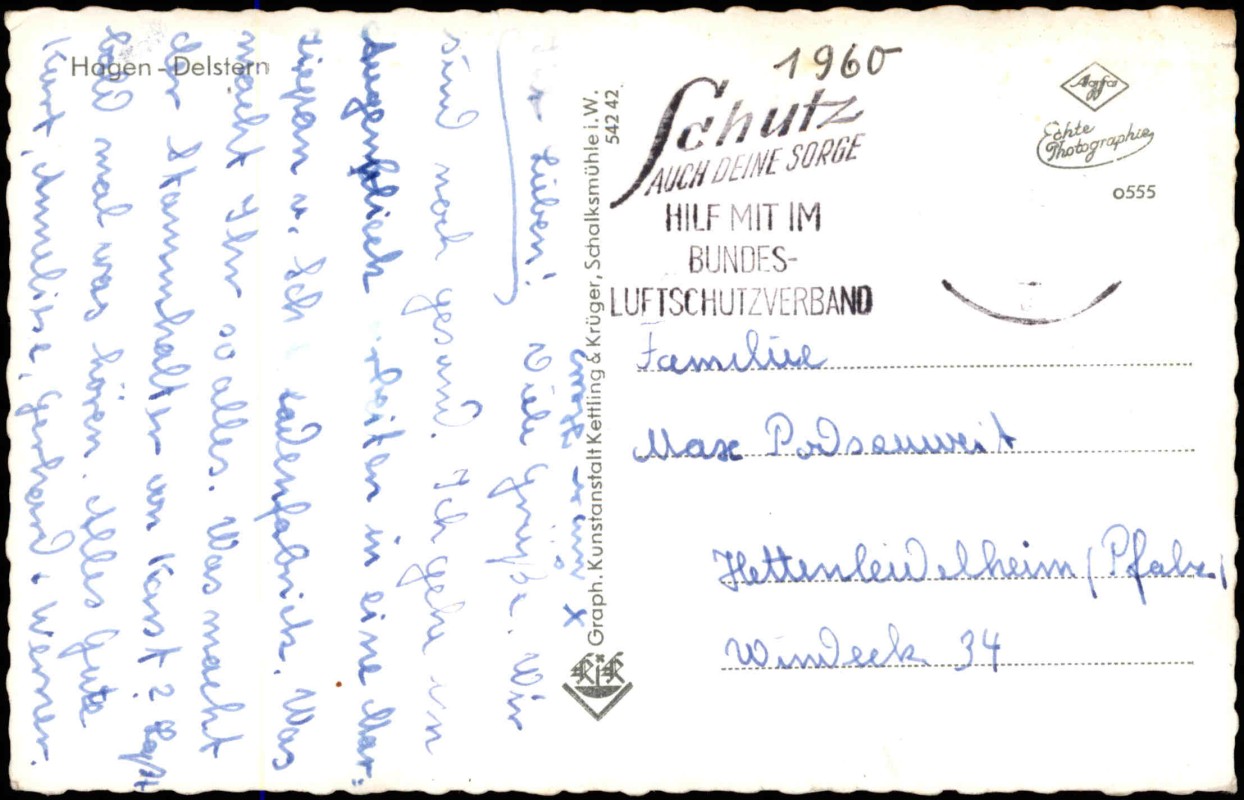 Hagen - Delstern
Lieben!
Viele Grüße. Wir
sind noch gesund. Ich gehe in
Augenblick arbeiten in eine Mar-
zipan u. Sch ladenfabrick. Was
macht Ihr so alles. Was macht
der Stammhalter von Karst? Laßt
bald mal was hören. Alles Gute
Kurt, Annelise, Gerhard + Werner.
Graph. Kunstanstalt Kettling & Krüger, Schalksmühle i. W.
542 42
1960
Schutz
AUCH DEINE SORGE
HILF MIT IM
BUNDES-
LUFTSCHUTZVERBAND
Agfa
Echte
Photographie
0555
Familie
Max Podsauweit
Hettenleidelheim (Pfalz)
Windeck 34